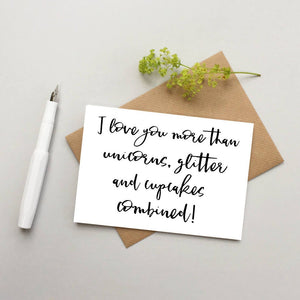 I love you more than
unicorns, glitter
and cupcakes
combined!